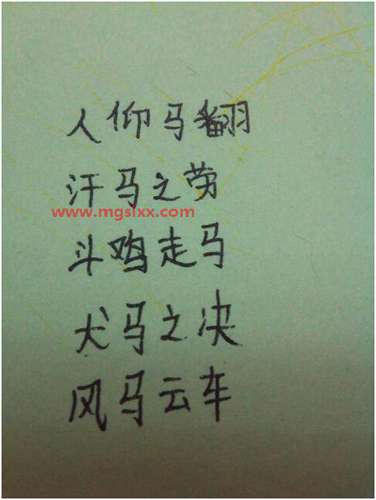 人仰马翻
汗马之劳
www.mgslxx.com
斗鸡走马
犬马之决
风马云车